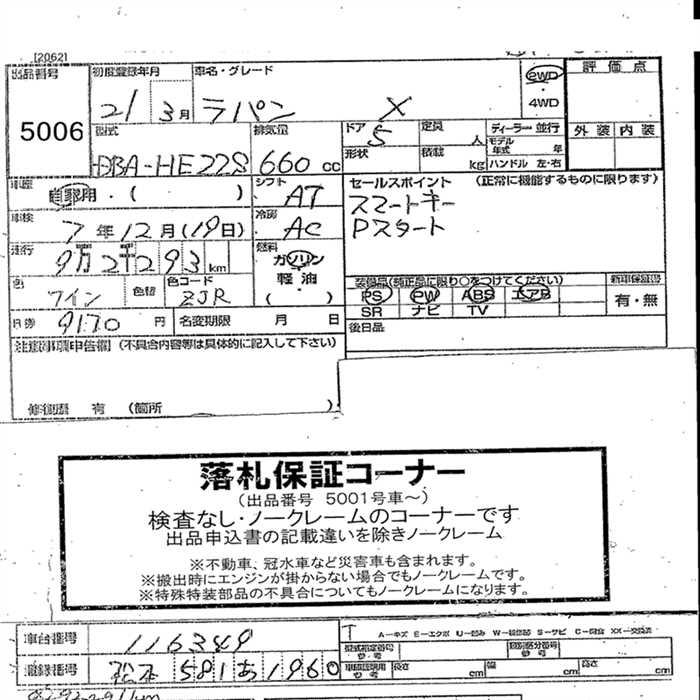 [2062]
出品番号 初度登録年月 車名・グレード 2WD ・ 4WD 評価点
5006 21 3月 ラパン X 外装 内装
型式 DBA-HE22S 排気量 660 cc ドア 5 定員 人 ディーラー・並行 モデル年式 年
形状 積載 kg ハンドル 左・右
車歴 自家用・( ) シフト AT セールスポイント (正常に機能するものに限ります)
スマートキー
Pスタート
車検 7年12月(19日) 冷房 AC
走行 9万2千293km 燃料 ガソリン 軽油 ( )
色 ワイン 色替 色コード ZJR
装備品(純正品に限り○をつけてください) 新車保証書
PS PW ABS エアB 有・無
SR ナビ TV
R券 9170 円 名変期限 月 日 後日品
注意事項申告欄 (不具合内容等は具体的に記入して下さい)
修復歴 有 (箇所 )
落札保証コーナー
(出品番号 5001号車～)
検査なし・ノークレームのコーナーです
出品申込書の記載違いを除きノークレーム
※不動車、冠水車など災害車も含まれます。
※搬出時にエンジンが掛からない場合でもノークレームです。
※特殊特装部品の不具合についてもノークレームになります。
車台番号 116349
A-キズ E-エクボ U-凹み W-補修跡 S-サビ C-腐食 XX-交換済
型式指定番号 参・考 類別区分番号
登録番号 松本 581 あ 1960 参・考 長さ cm 幅 cm 高さ cm